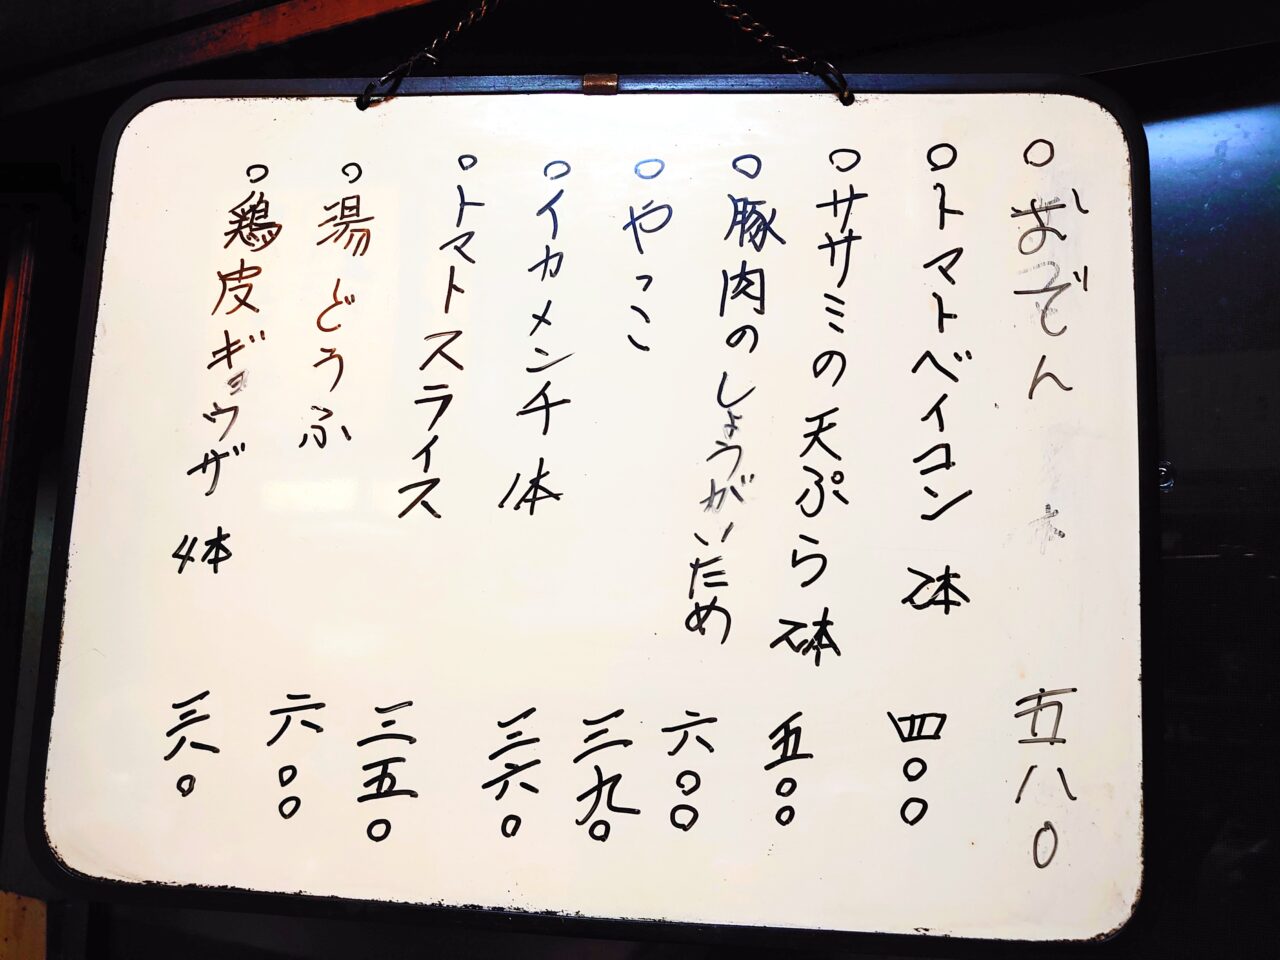 ○おぞん 五八〇
○トマトベイコン 2本 四〇〇
○ササミの天ぷら 2本 五〇〇
○豚肉のしょうがいため 六〇〇
○やっこ 三九〇
○イカメンチ 1本 三六〇
○トマトスライス 三五〇
○湯どうふ 六〇〇
○鶏皮ギョウザ 4本 三八〇